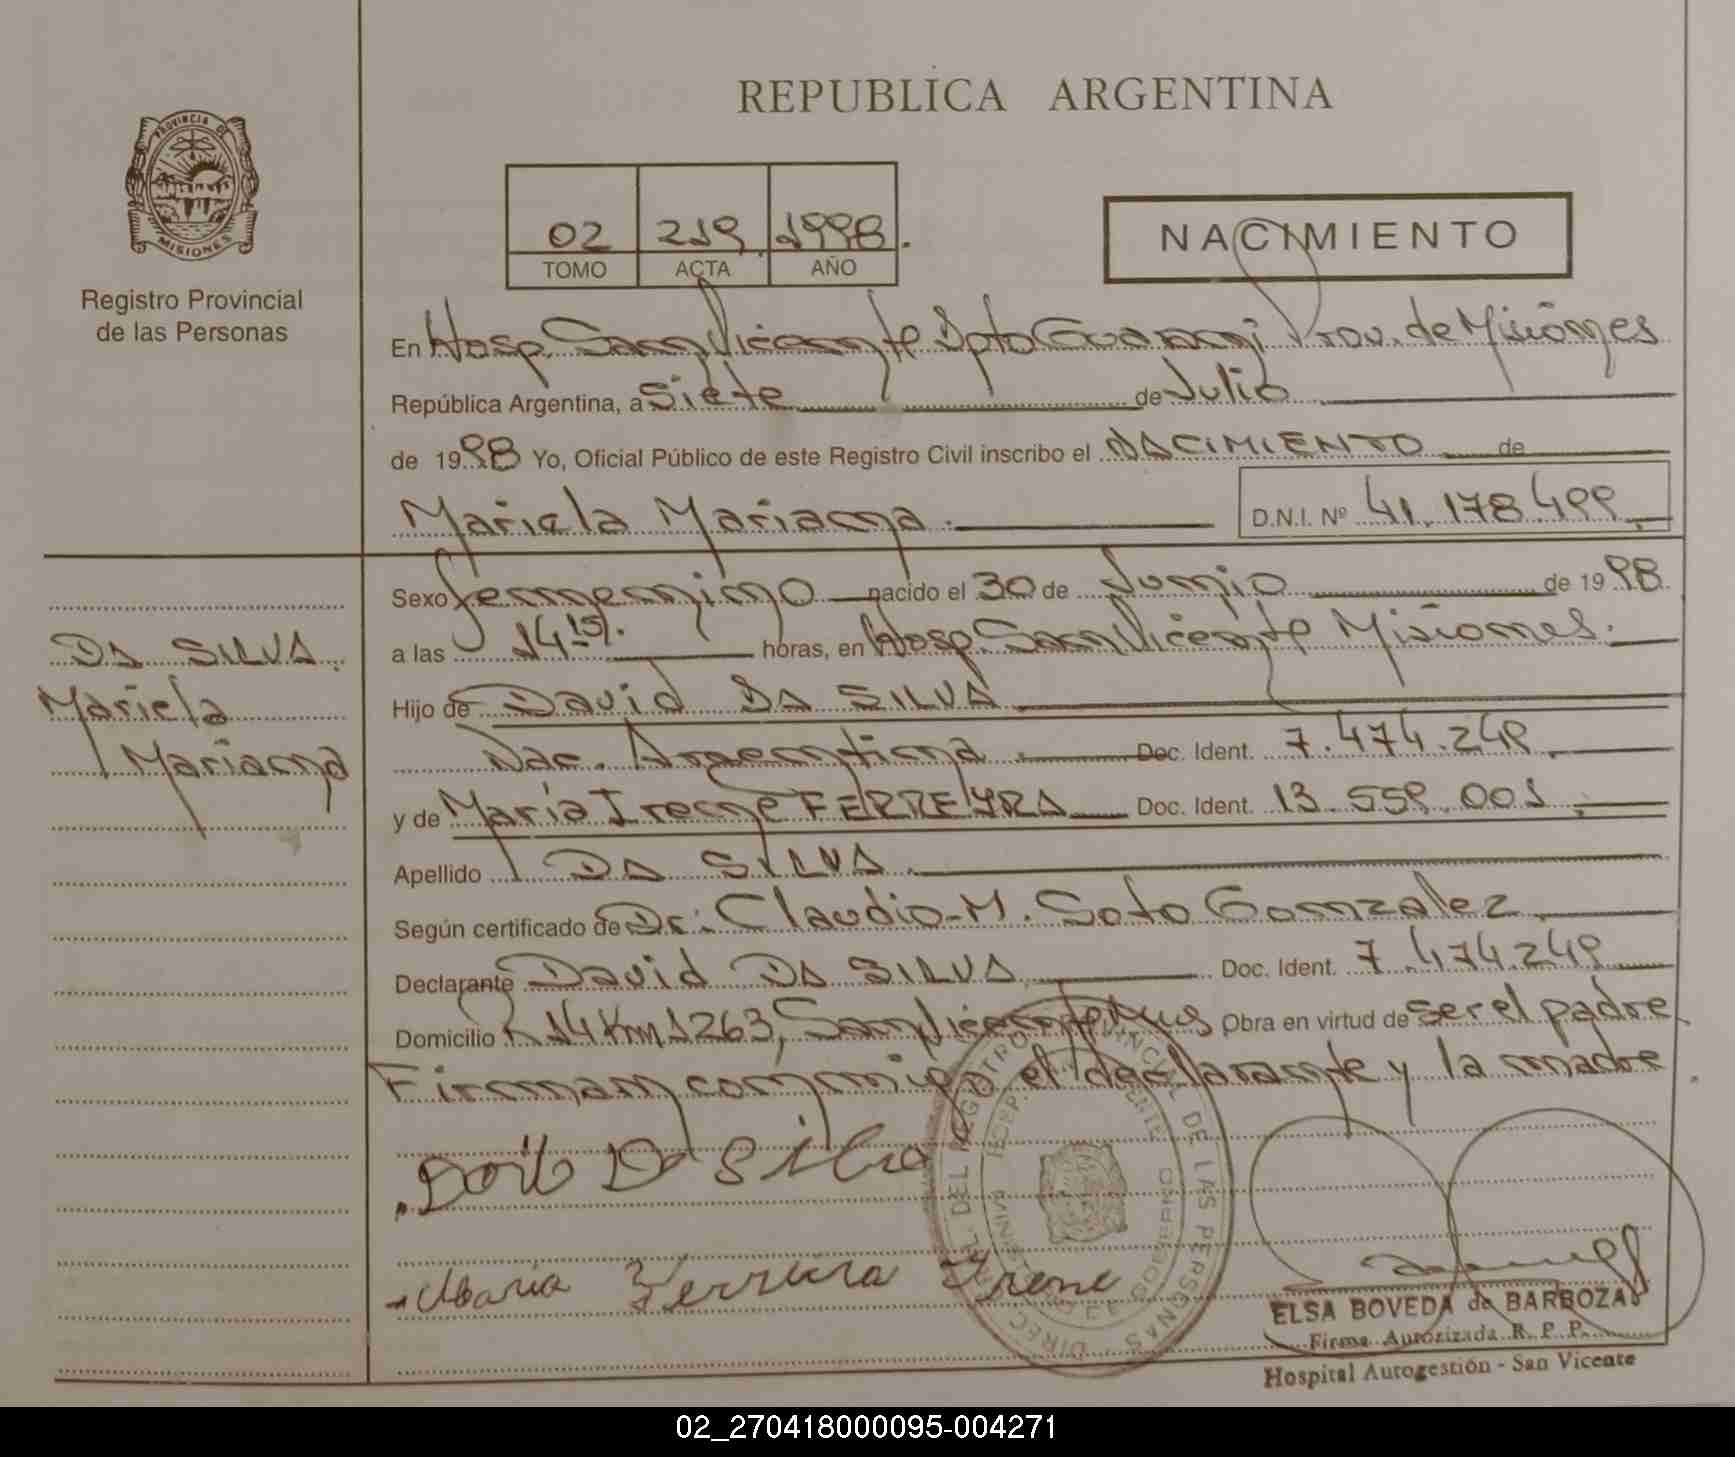 REPUBLICA ARGENTINA
PROVINCIA DE
MISIONES
Registro Provincial
de las Personas
02 219 1998.
TOMO ACTA AÑO
NACIMIENTO
En Hosp. San Vicente Dpto Guarani Prov. de Misiones
República Argentina, a Siete de Julio
de 1998 Yo, Oficial Público de este Registro Civil inscribo el NACIMIENTO de
Mariela Mariana. D.N.I. Nº 41.178.499
Sexo femenino nacido el 30 de Junio de 1998.
a las 14 15'. horas, en Hosp. San Vicente Misiones.
DA SILVA.
Mariela
Mariana
Hijo de David DA SILVA
Nac. Argentina. Doc. Ident. 7.474.249.
y de María Irene FERREYRA Doc. Ident. 13.559.001.
Apellido DA SILVA.
Según certificado de Dr. Claudio M. Soto Gonzalez.
Declarante David DA SILVA. Doc. Ident. 7.474.249
Domicilio R 14 Km 1263, San Vicente Mnes Obra en virtud de ser el padre
Firman conmigo el declarante y la madre
Da Silva
Maria Ferreira Irene
DEL REGISTRO PROVINCIAL DE LAS PERSONAS
ELSA BOVEDA de BARBOZA
Firma Autorizada R. P. P.
Hospital Autogestión - San Vicente
02_270418000095-004271